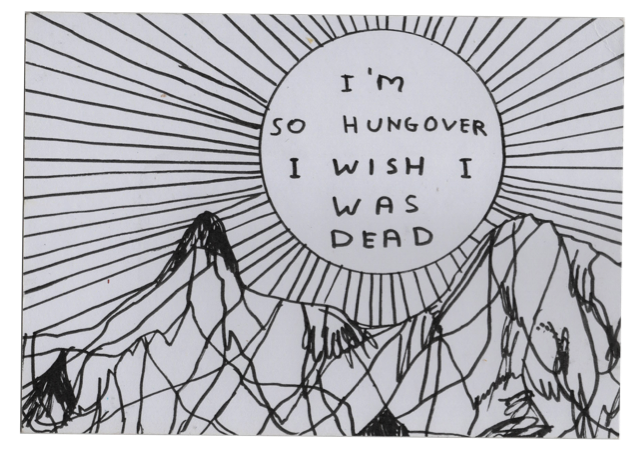 I'M
SO HUNGOVER
I WISH I
WAS
DEAD